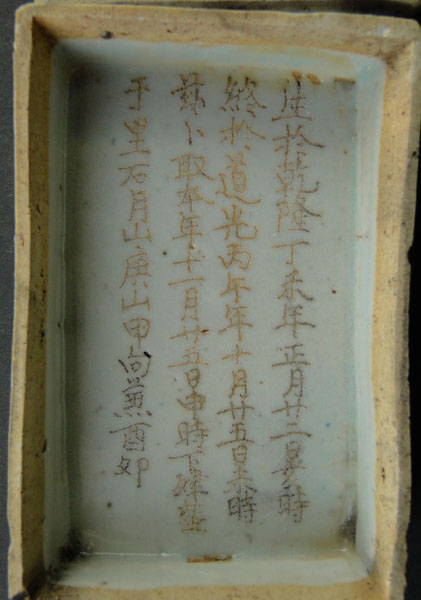 生於乾隆丁未年正月廿二日時
終於道光丙午年十月廿五日未時
茲卜取本年十一月廿五日申時下肂塟
于里石月山庚山甲向兼酉卯